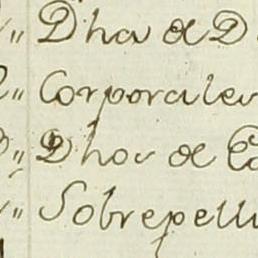 " Dha de D
" Corporaes
" Dha de Co
" Sobrepelli